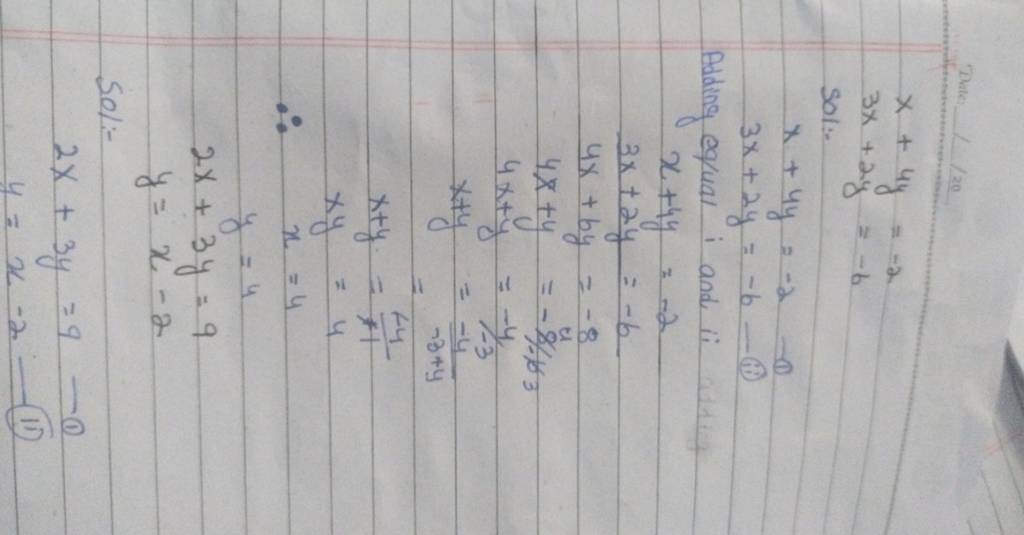 Date: / /20
x + 4y = -2
3x + 2y = -6
Sol:-
x + 4y = -2 — ⓘ
3x + 2y = -6 — ⓘⓘ
Adding equal i and ii
x + 4y = -2
3x + 2y = -6
4x + 6y = -8
4x + y = -8/-6 4 3
4x + y = -4/-3
x + y = -4/-3+4
=
x + y = -4/1
xy = 4
∴ x = 4
y = 4
2x + 3y = 9
y = x - 2
Sol:-
2x + 3y = 9 — ⓘ
y = x - 2 — ⓘⓘ